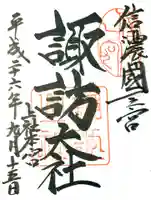 信濃國一之宮
諏訪大社
上社本宮
平成二十六年九月十三日